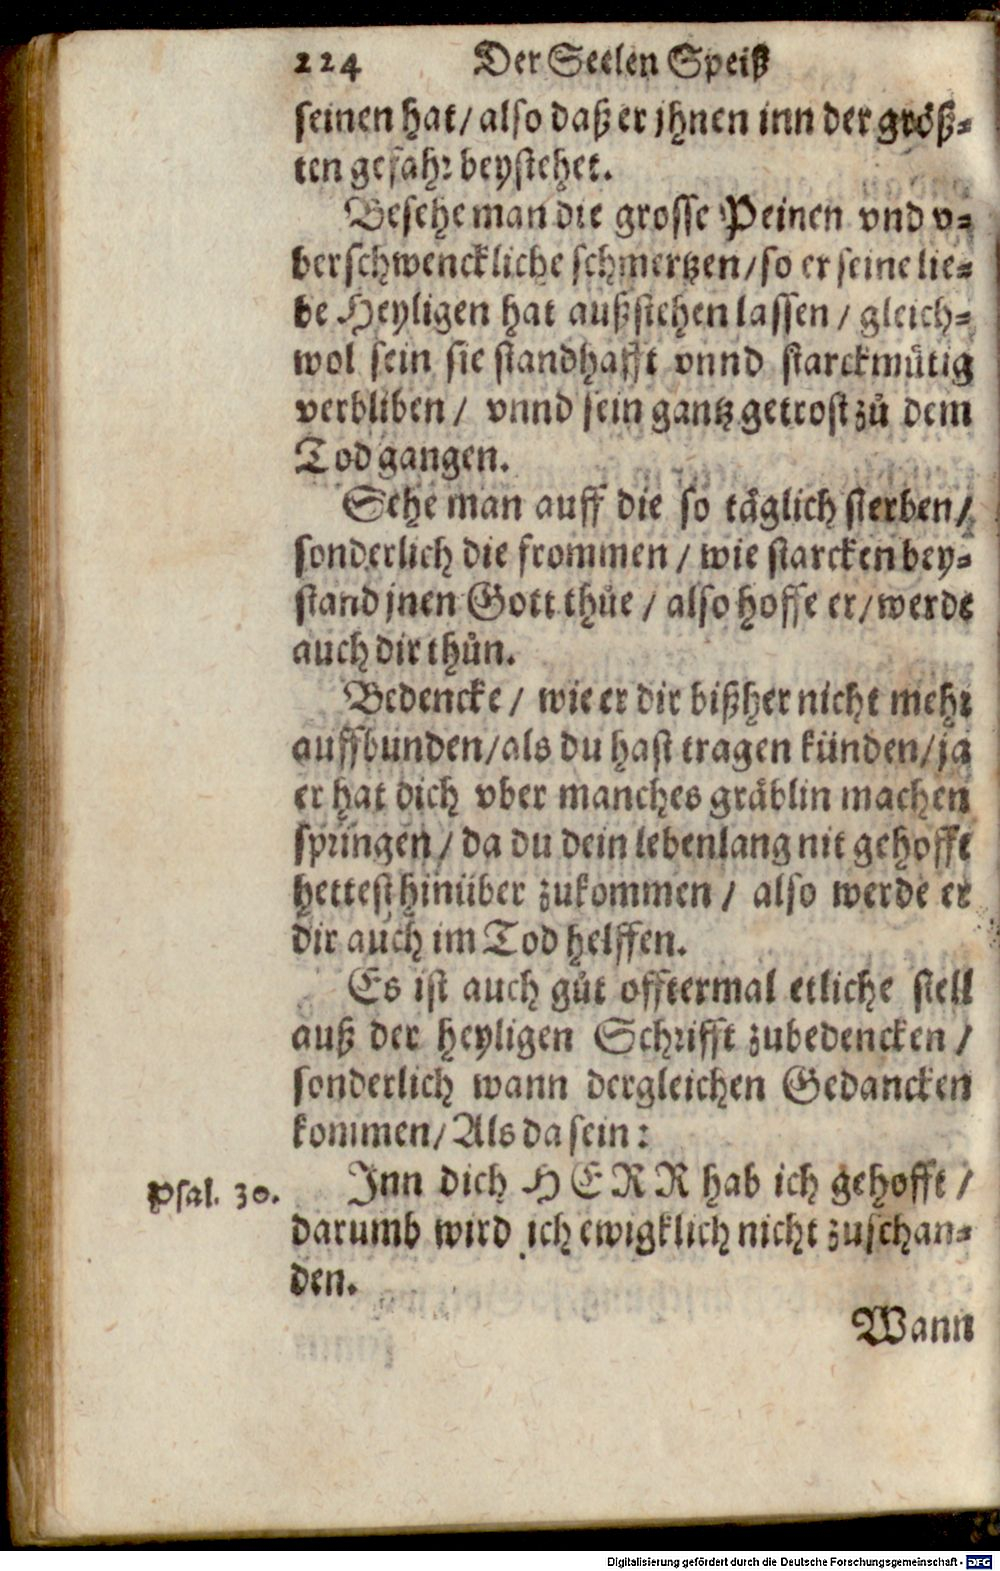 224 Der Seelen Speiß
seinen hat / also daß er jhnen inn der größ-
ten gefahr beystehet.
Besehe man die grosse Peinen vnd v-
berschwenckliche schmertzen / so er seine lie-
be Heyligen hat außstehen lassen / gleich-
wol sein sie standhafft vnnd starckmütig
verbliben / vnnd sein gantz getrost zů dem
Tod gangen.
Sehe man auff die so täglich sterben /
sonderlich die frommen / wie starcken bey-
stand jnen Gott thůe / also hoffe er / werde
auch dir thůn.
Bedencke / wie er dir bißher nicht mehr
auffbunden / als du hast tragen künden / ja
er hat dich vber manches gräblin machen
springen / da du dein lebenlang nit gehofft
hettest hinüber zukommen / also werde er
dir auch im Tod helffen.
Es ist auch gůt offtermal etliche stell
auß der heyligen Schrifft zubedencken /
sonderlich wann dergleichen Gedancken
kommen / Als da sein:
Psal. 30. Inn dich HERR hab ich gehofft /
darumb wird ich ewigklich nicht zuschan-
den.
Wann
Digitalisierung gefördert durch die Deutsche Forschungsgemeinschaft - DFG